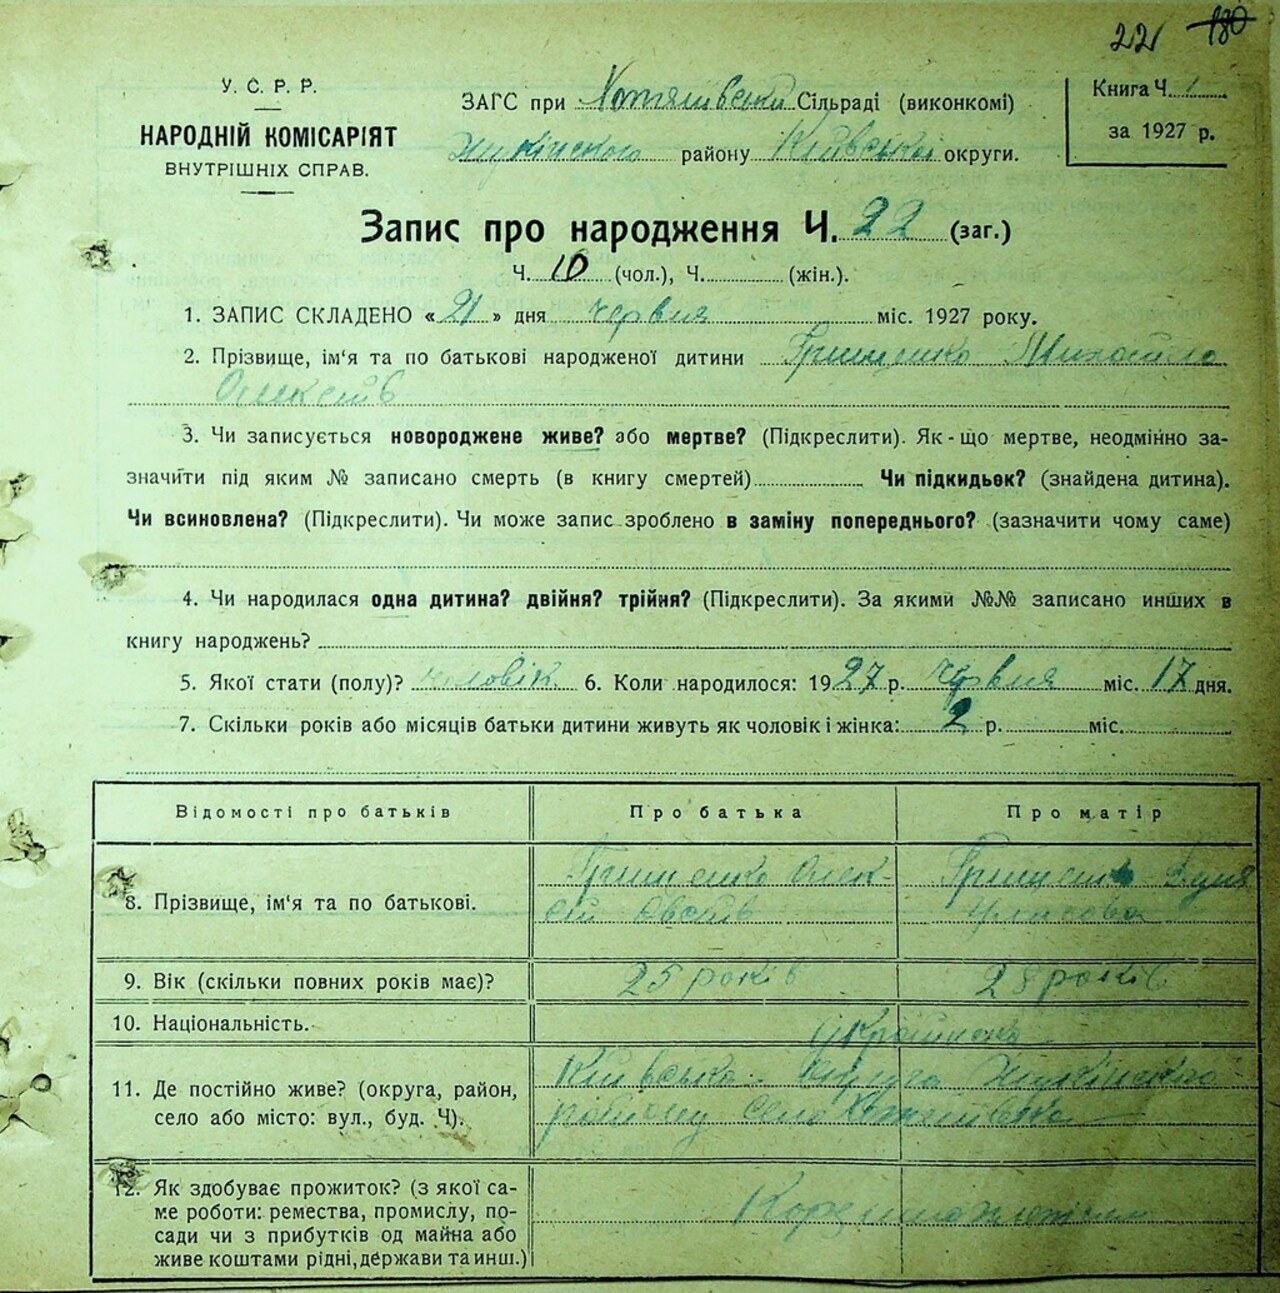 22 180
У. С. Р. Р.
НАРОДНІЙ КОМІСАРІЯТ
ВНУТРІШНІХ СПРАВ.
ЗАГС при Хотянівській Сільраді (виконкомі)
Жукінського району Київської округи.
Книга Ч. 1
за 1927 р.
Запис про народження Ч. 22 (заг.)
Ч. 10 (чол.), Ч. (жін.).
1. ЗАПИС СКЛАДЕНО « 21 » дня червня міс. 1927 року.
2. Прізвище, ім'я та по батькові народженої дитини Грищенко Михайло
Олексіїв
3. Чи записується новороджене живе? або мертве? (Підкреслити). Як-що мертве, неодмінно за-
значити під яким № записано смерть (в книгу смертей) Чи підкидьок? (знайдена дитина).
Чи всиновлена? (Підкреслити). Чи може запис зроблено в заміну попереднього? (зазначити чому саме)
4. Чи народилася одна дитина? двійня? трійня? (Підкреслити). За якими №№ записано инших в
книгу народжень?
5. Якої стати (полу)? чоловік 6. Коли народилося: 1927 р. червня міс. 17 дня.
7. Скільки років або місяців батьки дитини живуть як чоловік і жінка: 2 р. міс.
Відомості про батьків Про батька Про матір
8. Прізвище, ім'я та по батькові.
Грищенко Олек-
сій
Грищенко
9. Вік (скільки повних років має)? 25 років 28 років
10. Національність. українська
11. Де постійно живе? (округа, район,
село або місто: вул., буд. Ч).
Київська округа Жукінського
району село Хотянівка
12. Як здобуває прожиток? (з якої са-
ме роботи: ремества, промислу, по-
сади чи з прибутків од майна або
живе коштами рідні, держави та инш.)